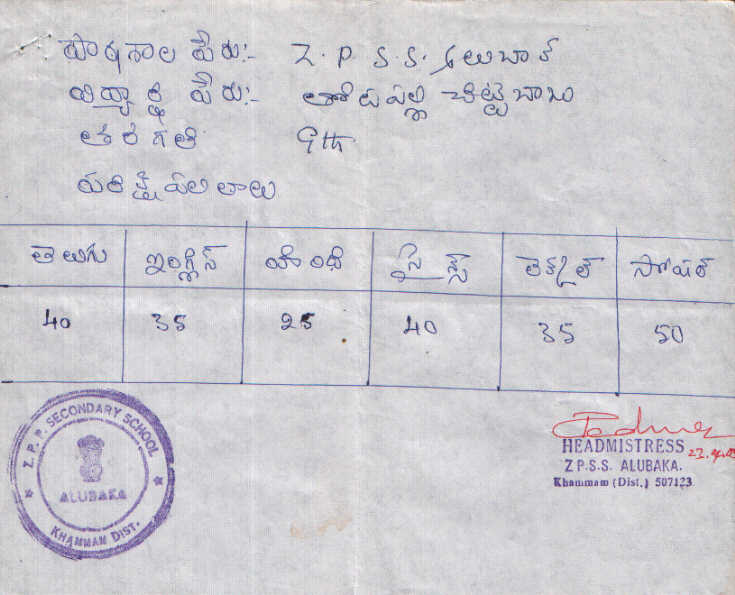 పాఠశాల పేరు:- Z. P. S. S. ఆలుబాక
విద్యార్థి పేరు:- తోటపల్లి చిట్టిబాబు
తరగతి 9th
పరీక్ష ఫలితాలు
తెలుగు ఇంగ్లీష్ హిందీ సైన్స్ లెక్కలు సోషల్
40 35 25 40 35 50
Z. P. P. SECONDARY SCHOOL
ALUBAKA
KHAMMAM DIST.
HEADMISTRESS
Z P.S.S. ALUBAKA.
Khammam (Dist.) 507123